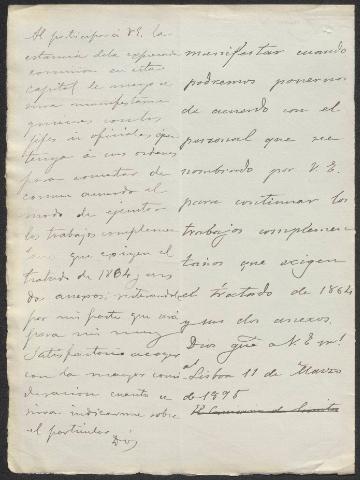 Al participar á V.E. la
estancia de la expresada
comision en esta
capital le ruego se
sirva manifestarme
quienes son los
jefes ú oficiales que
tenga á sus ordenes
para concertar de
comun acuerdo el
modo de ejecutar
los trabajos complemen
tarios que exigen el
tratado de 1864 y sus
dos anexos;
por mi parte que será
para mi muy
satisfactorio acoger
con la mayor consi
deracion cuanto se
sirva indicarme sobre
el particular.
Dios
manifestar cuando
podremos ponernos
de acuerdo con el
personal que sea
nombrado por V.E.
para continuar los
trabajos complemen
tarios que exigen
el tratado de 1864
y sus dos anexos.
Dios gue á V.E. ms
as Lisboa 11 de Marzo
de 1895